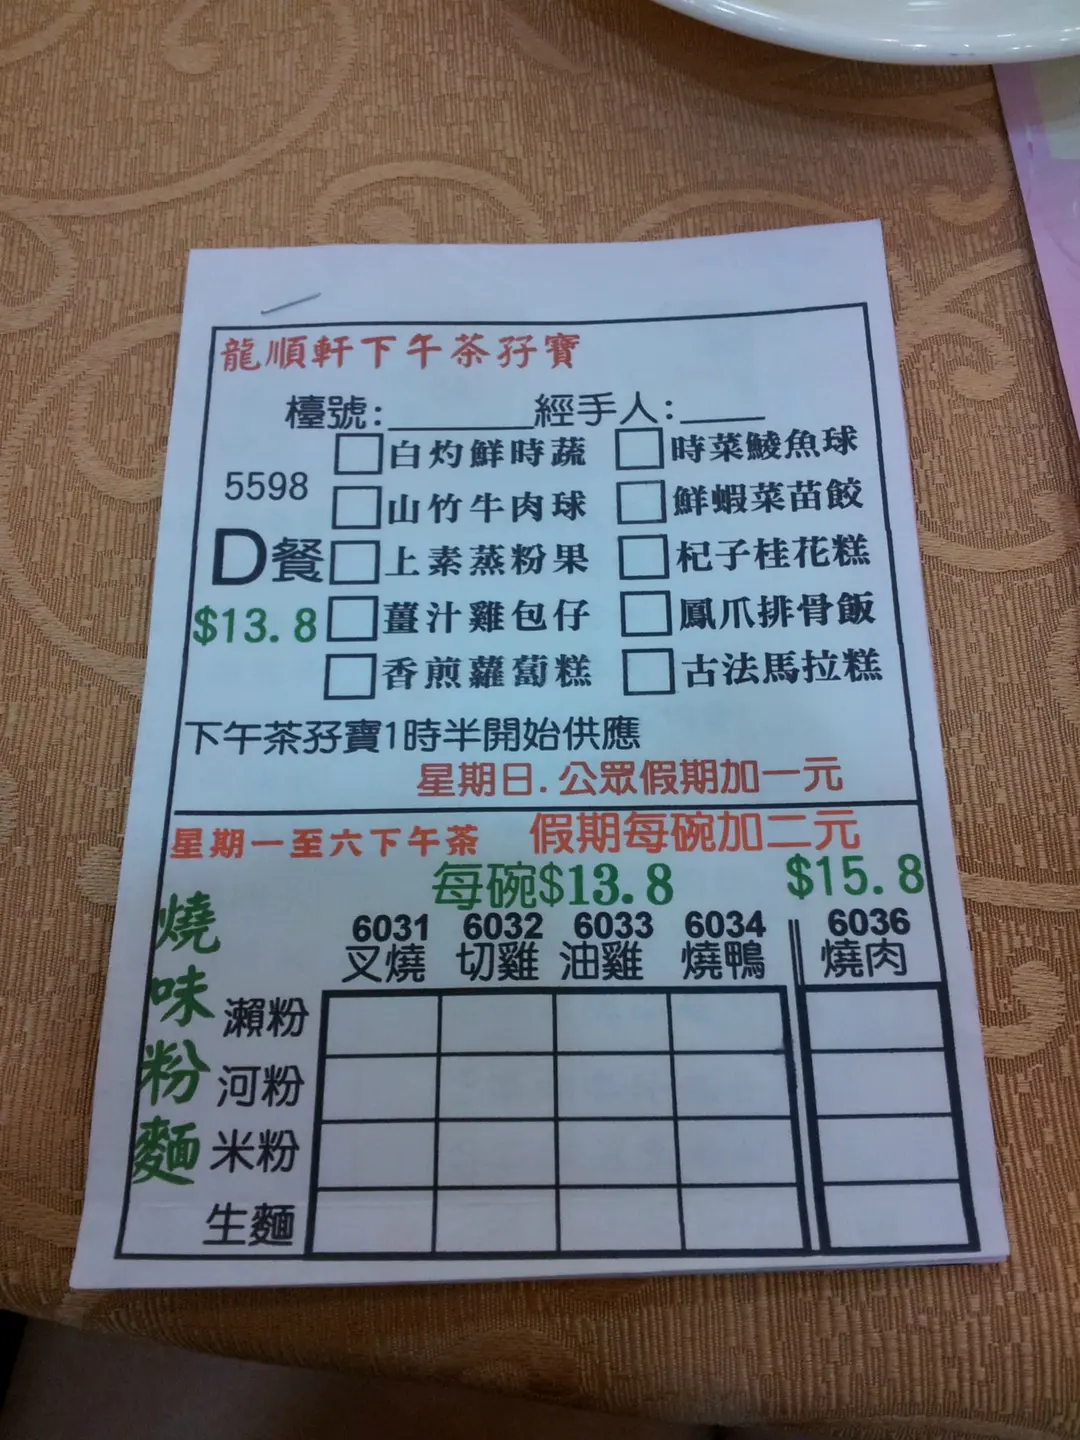 龍順軒下午茶孖寶
檯號:______經手人:___
白灼鮮時蔬 時菜鯪魚球
5598
山竹牛肉球 鮮蝦菜苗餃
D餐
上素蒸粉果 杞子桂花糕
$13.8
薑汁雞包仔 鳳爪排骨飯
香煎蘿蔔糕 古法馬拉糕
下午茶孖寶1時半開始供應
星期日.公眾假期加一元
星期一至六下午茶 假期每碗加二元
每碗$13.8 $15.8
燒味粉麵
6031 6032 6033 6034 6036
叉燒 切雞 油雞 燒鴨 燒肉
瀨粉
河粉
米粉
生麵